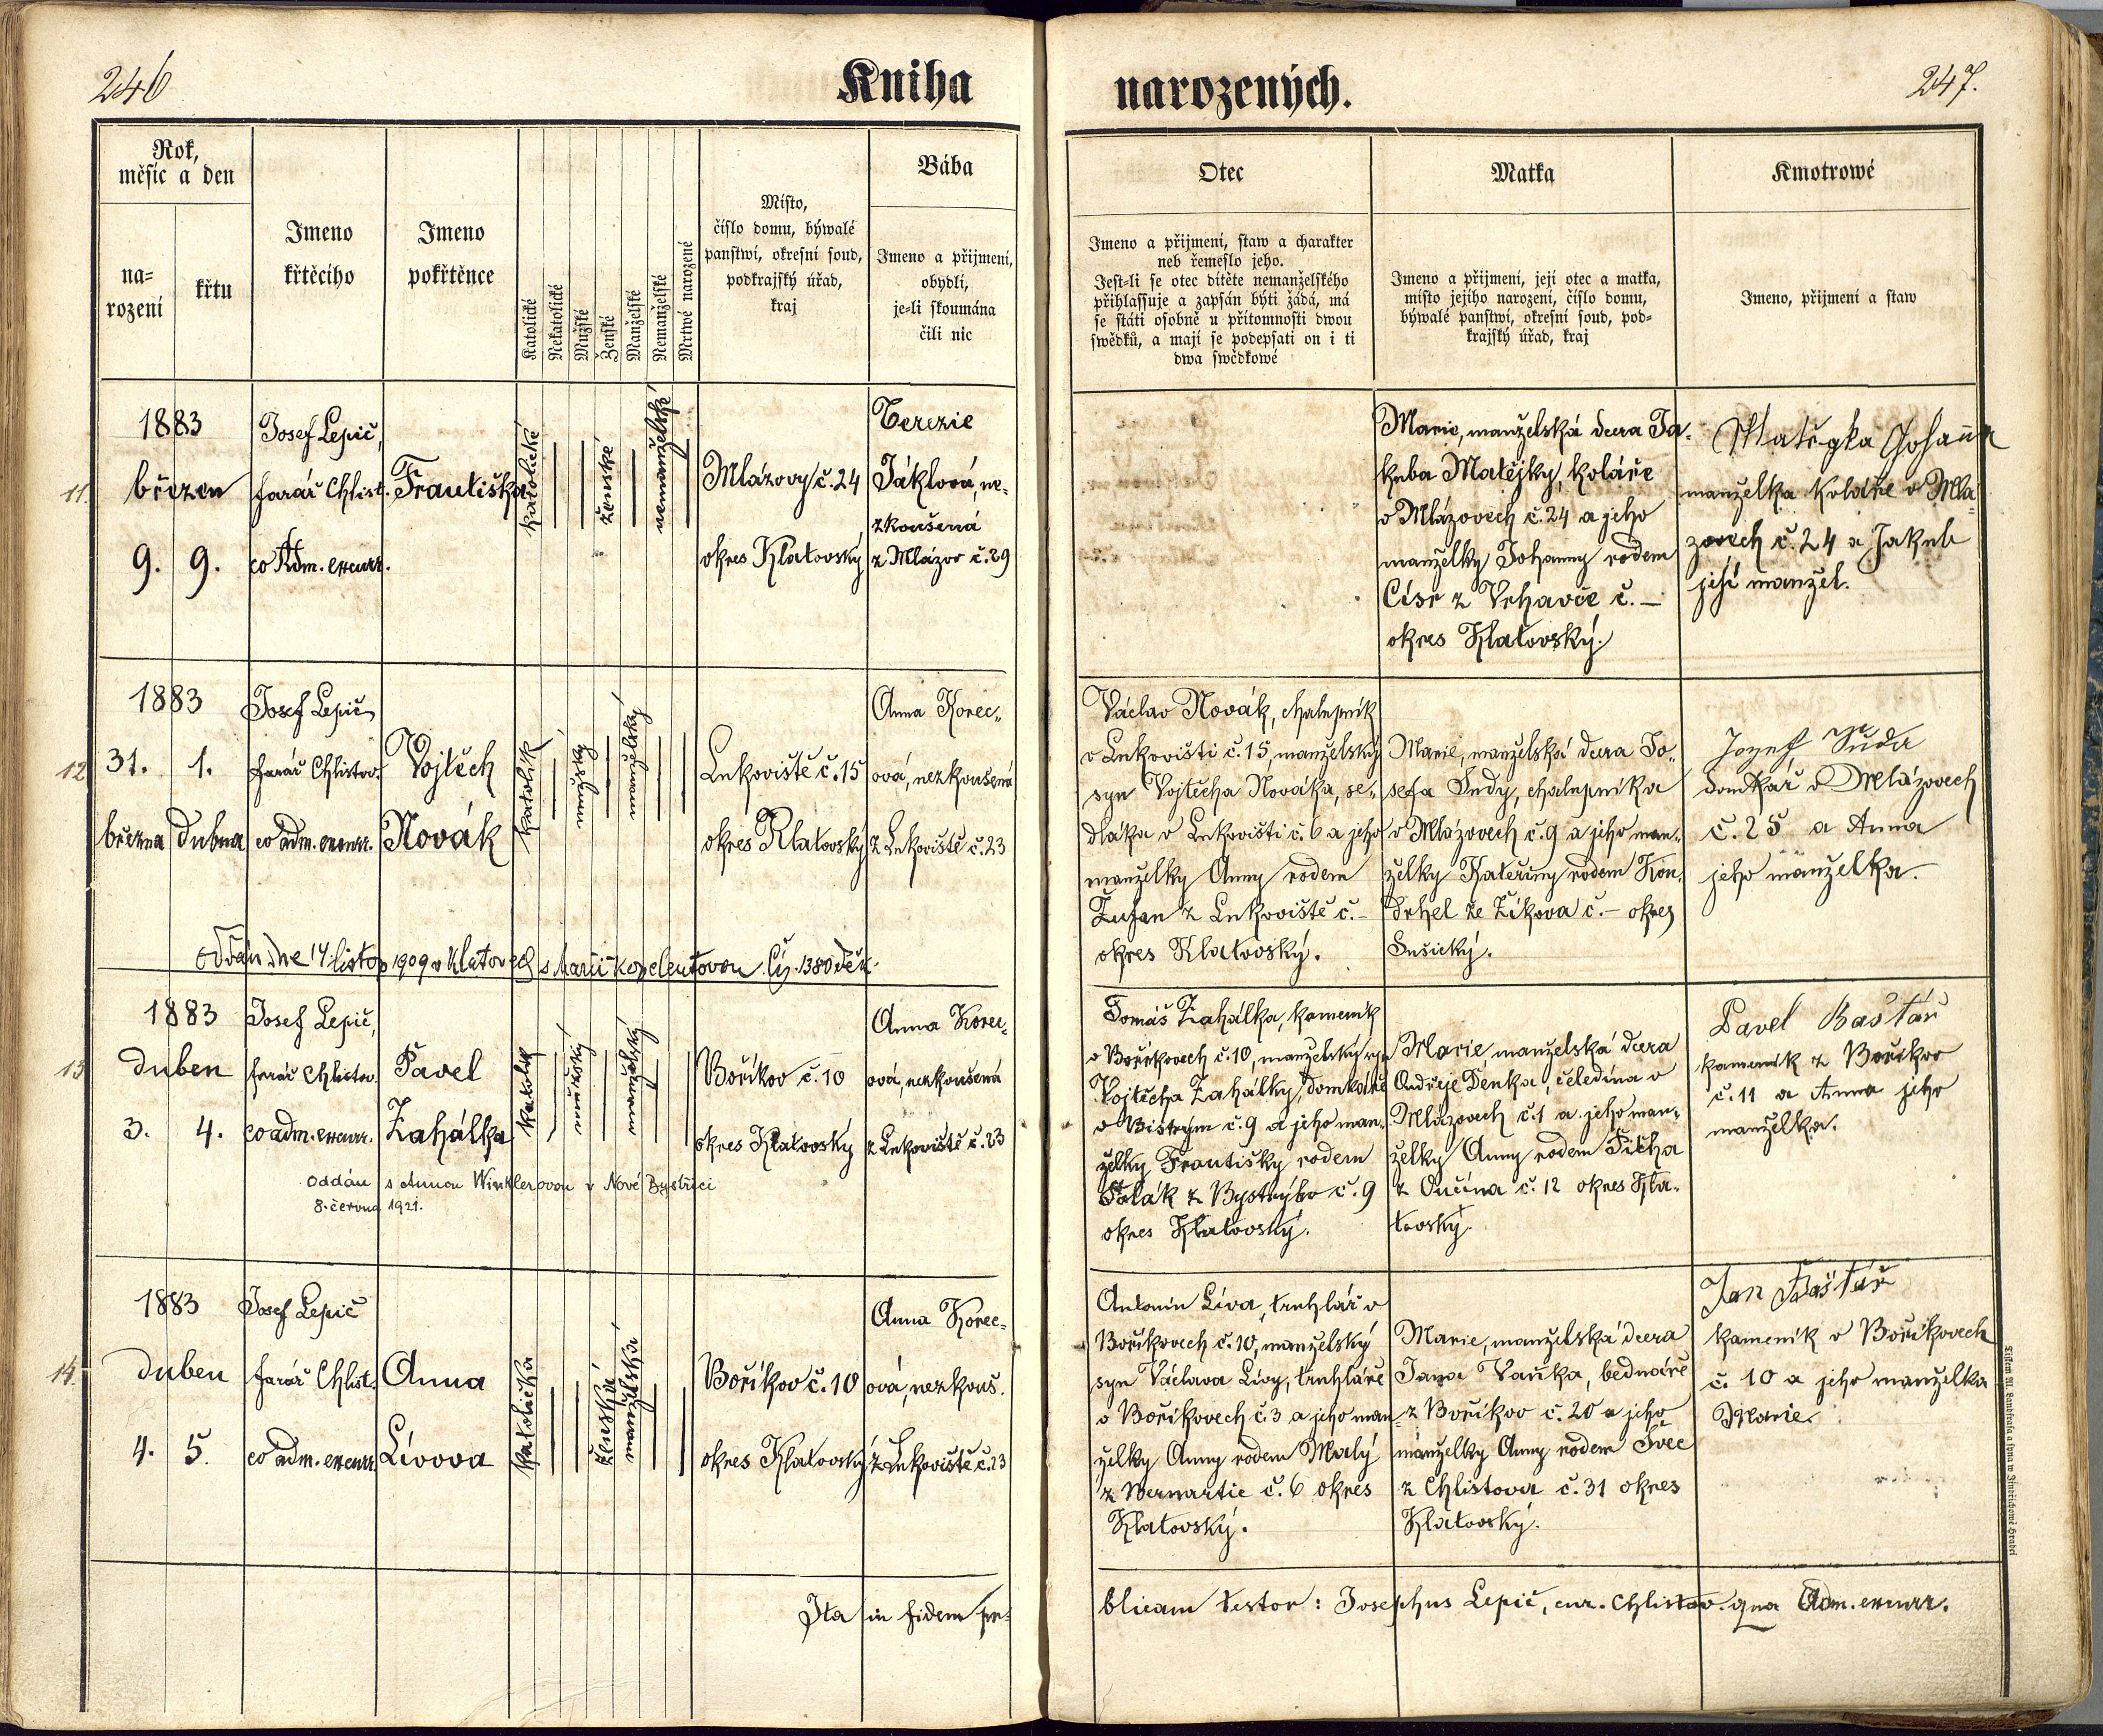 246
Kniha
narozených.
247.
Rok,
měsíc a den
na=
rození
křtu
Jmeno
křtěcího
Jmeno
pokřtěnce
Katolické
Nekatolické
Mužské
Ženské
Manželské
Nemanželské
Mrtwé narozené
Místo,
číslo domu, býwalé
panstwí, okresní soud,
podkrajský úřad,
kraj
Bába
Jmeno a přijmení,
obydlí,
je=li skoumána
čili nic
Otec
Jmeno a přijmení, staw a charakter
neb řemeslo jeho.
Jest=li se otec dítěte nemanželského
přihlassuje a zapsán býti žádá, má
se státi osobně u přítomnosti dwou
swědků, a mají se podepsati on i ti
dwa swědkowé
Matka
Jmeno a přijmení, její otec a matka,
místo jejího narození, číslo domu,
býwalé panstwí, okresní soud, pod=
krajský úřad, kraj
Kmotrowé
Jmeno, přijmení a staw
11.
1883
březen
9. 9.
Josef Lepič,
farář Chlist.
co Adm. excurr.
Františka
katolické
ženské
nemanželské
Mlázovy č. 24
okres Klatovský
Terezie
Jáklová, ne-
zkoušená
z Mlázov č. 29
Marie, manželská dcera Ja-
kuba Matějky, koláře
v Mlázovech č. 24 a jeho
manželky Johanny rodem
Císř z Vrhavče č. –
okres Klatovský.
Mategka Johanna
manželka koláře v Mlá-
zovech č. 24 a Jakub
její manžel.
12
1883
31. 1.
března dubna
Josef Lepič,
farář Chlistov.
co adm. excurr.
Vojtěch
Novák
katolík
mužský
manželský
Lukoviště č. 15
okres Klatovský
Anna Korec-
ová, nezkoušená
z Lukoviště č. 23
Václav Novák, chalupník
v Lukovišti č. 15, manželský
syn Vojtěcha Nováka, se-
dláka v Lukovišti č. 6 a jeho
manželky Anny rodem
z Lukoviště č. –
okres Klatovský.
Marie, manželská dcera Jo-
sefa Sudy, chalupníka
v Mlázovech č. 9 a jeho man-
želky Kateřiny rodem Kon-
drhel ze Žíkova č. – okres
Sušický.
Jozef Suda
domkář v Mlázovech
č. 25 a Anna
jeho manželka.
oddán dne 14 listop 1909 v Klatovech s Marií Kopelentovou čís. 1380 děk.
13
1883
duben
3. 4.
Josef Lepič,
farář Chlistov.
co adm. excurr.
Pavel
Zahálka
katolík
mužský
manželský
Boříkov č. 10
okres Klatovský
Anna Korec-
ová, nezkoušená
z Lukoviště č. 23
Tomáš Zahálka, kameník
v Boříkovech č. 10, manželský syn
Vojtěcha Zahálky, domkáře
v Bistrým č. 9 a jeho man-
želky Františky rodem
z Bystrýho č. 9
okres Klatovský.
Marie, manželská dcera
Ondřeje Denka, čeledína v
Mlázovech č. 1 a jeho man-
želky Anny rodem Ticha
z Ončína č. 12 okres Kla-
tovský.
Pavel Baštář
kameník z Boříkov
č. 11 a Anna jeho
manželka.
oddán s Annou Winklerovou v Nové Bystřici
8. června 1921.
14.
1883
duben
4. 5.
Josef Lepič
farář Chlist.
co adm. excurr.
Anna
Lívova
katolička
ženská
manželská
Boříkov č. 10
okres Klatovský
Anna Korec-
ová, nezkouš.
z Lukoviště č. 23
Antonín Líva, truhlář v
Boříkovech č. 10, manželský
syn Václava Lívy, truhláře
v Boříkovech č. 3 a jeho man-
želky Anny rodem Malý
z Bernartic č. 6 okres
Klatovský.
Marie, manželská dcera
Jana Vaňka, bednáře
z Boříkov č. 20 a jeho
manželky Anny rodem Švec
z Chlistova č. 31 okres
Klatovský.
Jan Baštář
kameník v Boříkovech
č. 10 a jeho manželka
Marie.
Ita in fidem pu-
blicam testor: Josephus Lepič, cur. Chlistov. qua Adm. excurr.
Tiskem Al. Landfrasa a syna w Jindřichowě Hradci